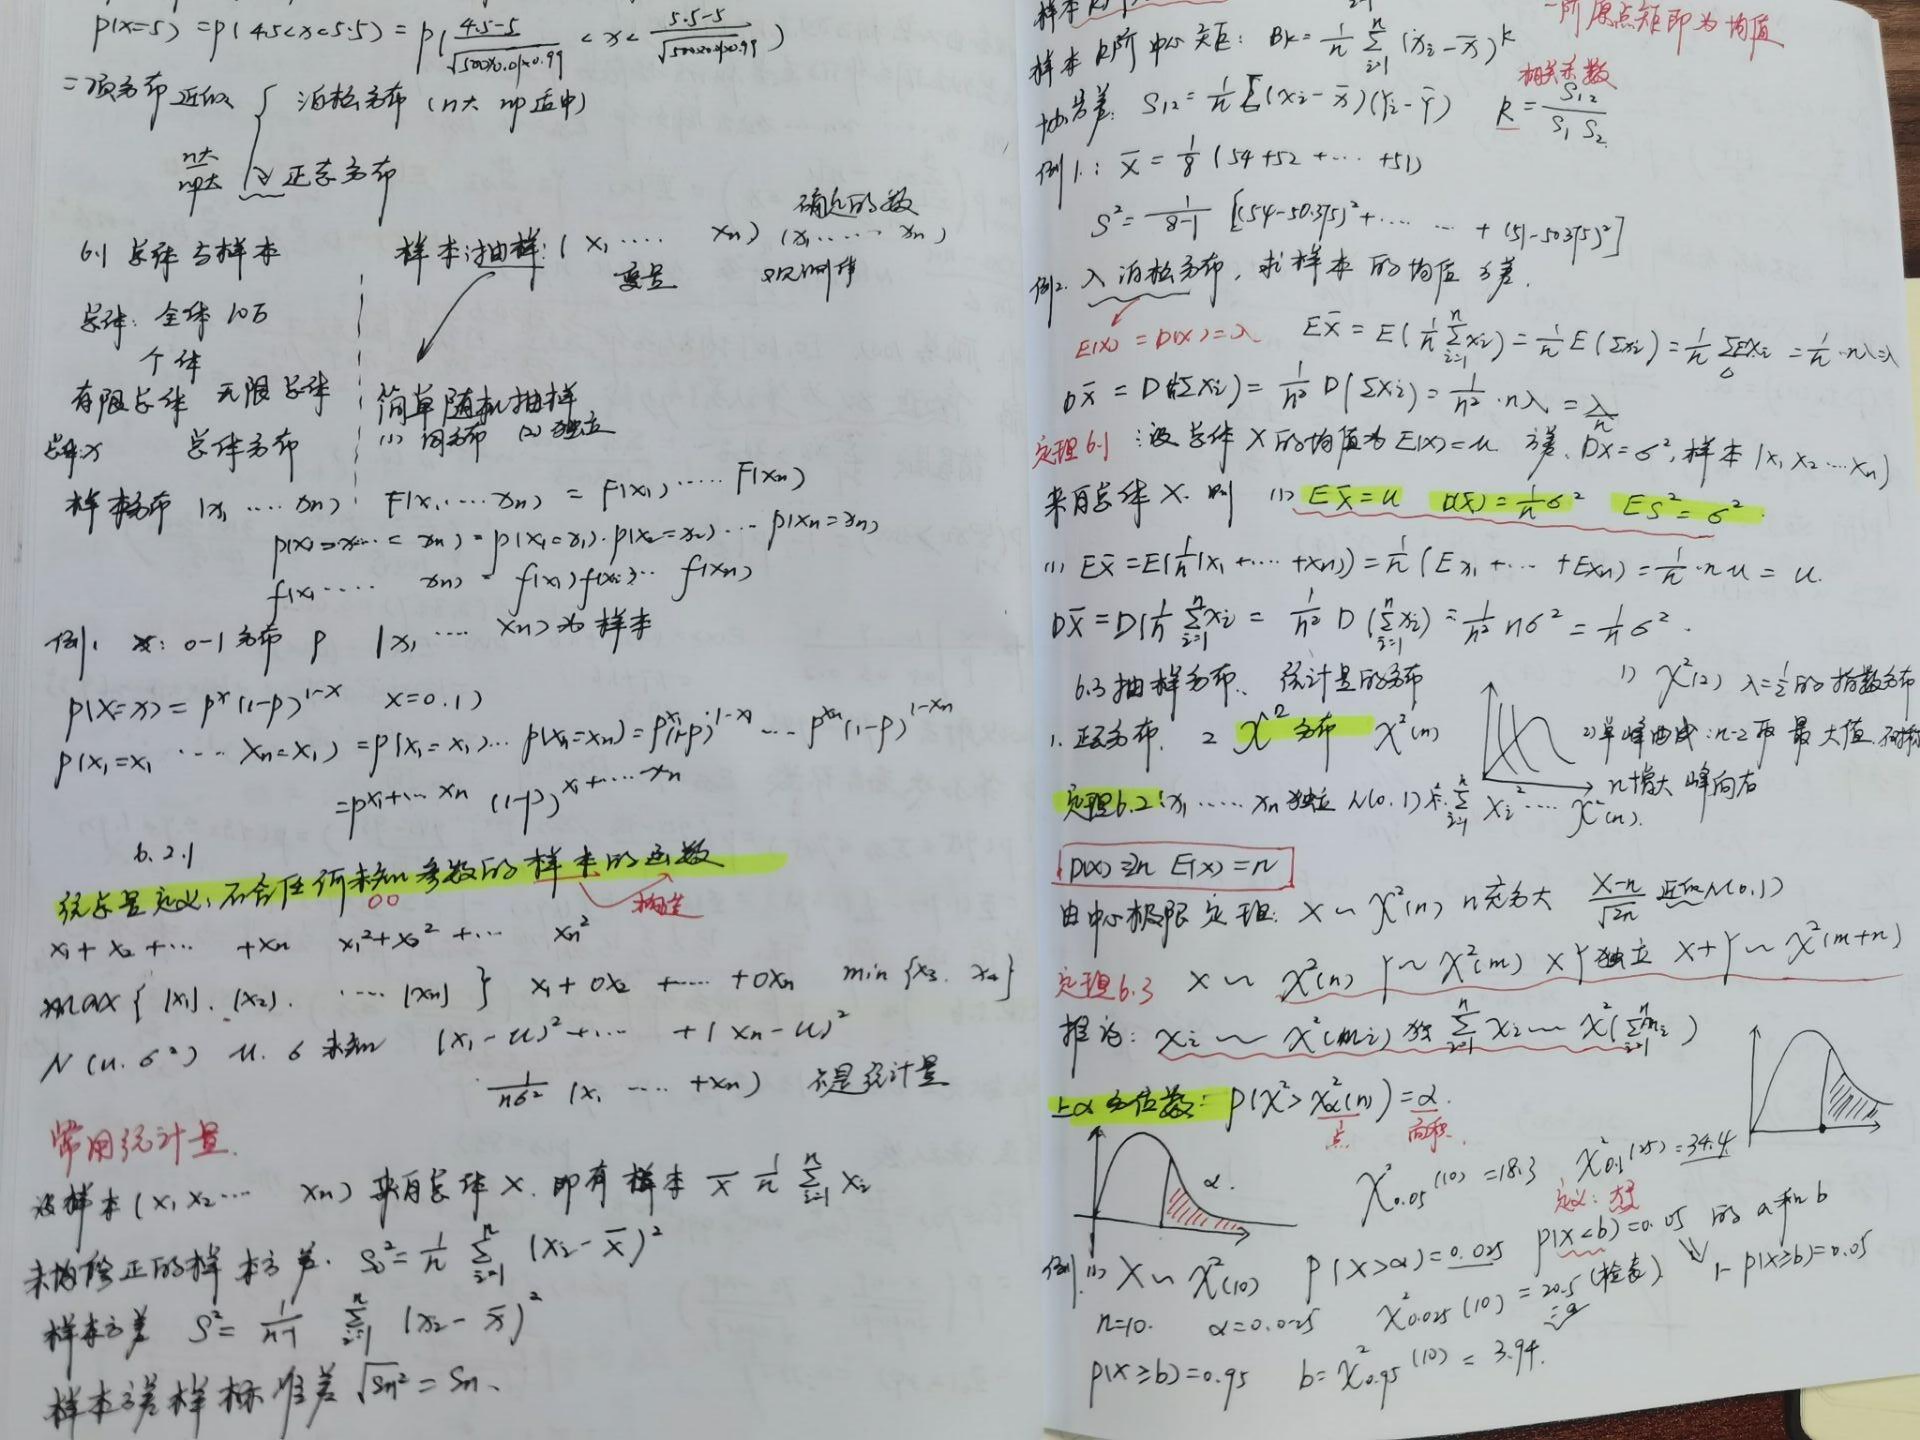 P(X=5) = P(4.5<X<5.5) = P(\frac{4.5-5}{\sqrt{500×0.01×0.99}} < x < \frac{5.5-5}{\sqrt{500×0.01×0.99}})
二项分布 近似 { 泊松分布 (n大 np适中)
n大 np大 正态分布
6.1 总体与样本
样本:抽样: (X₁ …… Xn) 变量 确定的数 (x₁ …… xn) 观测值
总体: 全体 10万
个体
有限总体 无限总体 简单随机抽样
(1) 同分布 (2) 独立
总体X 总体分布
样本分布 (x₁ …… xn) F(x₁ …… xn) = F(x₁) …… F(xn)
P(X₁=x₁ …… xn) = P(X₁=x₁)·P(X₂=x₂) … P(Xn=xn)
f(x₁ …… xn) = f(x₁) f(x₂) … f(xn)
例1. X: 0-1分布 P (X₁ …… Xn) 为样本
P(X=x) = pˣ(1-p)¹⁻ˣ x=0.1)
P(X₁=x₁ …… Xn=x₁) = P(X₁=x₁) … P(Xn=xn) = p^{x₁}(1-p)^{1-x₁} … p^{xn}(1-p)^{1-xn}
= p^{x₁+…xn} (1-p)^{x₁+……xn}
6.2.1
统计量定义: 不含任何未知参数的样本的函数
构造
x₁+x₂+… +xn x₁²+x₂²+… xn²
max{|x₁|. |x₂|. …. |xn|} x₁+0x₂+……+0xn min{x₃. x₄}
N(u.σ²) u.σ 未知 (x₁-u)²+… +(xn-u)²
\frac{1}{nσ²}(x₁ …… +xn) 不是统计量
常用统计量.
设样本(x₁ x₂… xn) 来自总体X. 即有样本 \bar{x} \frac{1}{n} \sum_{i=1}^{n} xi
未修正的样本方差. S₀² = \frac{1}{n} \sum_{i=1}^{n} (xi-\bar{x})²
样本方差 S² = \frac{1}{n-1} \sum_{i=1}^{n} (xi-\bar{x})²
样本方差 样标准差 \sqrt{Sn²} = Sn、
一阶原点矩即为均值
样本k阶中心矩: Bk = \frac{1}{n} \sum_{i=1}^{n} (xi-\bar{x})^k
协方差: S₁₂ = \frac{1}{n} Σ(xi-\bar{x})(Yi-\bar{Y}) 相关系数 R = \frac{S₁₂}{S₁ S₂}
例1.: \bar{x} = \frac{1}{8}(54+52+… +51)
S² = \frac{1}{8-1}[(54-50.375)²+…… … +(51-50.375)²]
例2. 入 泊松分布, 求样本的均值 方差.
E(X) = D(X) = λ E\bar{X} = E(\frac{1}{n} \sum_{i=1}^{n} xi) = \frac{1}{n} E(Σxi) = \frac{1}{n} ΣExi = \frac{1}{n}·nλ=λ
D\bar{X} = D(\frac{1}{n}Σxi) = \frac{1}{n²} D(Σxi) = \frac{1}{n²}·nλ = \frac{λ}{n}
定理6.1: 设总体X的均值为E(X)=u 方差、DX=σ², 样本(x₁ x₂ … xn)
来自总体X. 则 (1) E\bar{X}=u D(\bar{X})=\frac{1}{n}σ² ES²=σ².
(1) E\bar{X} = E(\frac{1}{n}(x₁+…+xn)) = \frac{1}{n}(Ex₁+… +Exn) = \frac{1}{n}·nu = u.
D\bar{X} = D(\frac{1}{n} \sum_{i=1}^{n} xi = \frac{1}{n²} D(\sum_{i=1}^{n} xi) = \frac{1}{n²} nσ² = \frac{1}{n}σ².
6.3 抽样分布、统计量的分布
1) χ²(2) λ=½的指数分布
1. 正态分布. 2 χ²分布 χ²(n)
2) 单峰曲线: n-2取最大值.不对称
n增大 峰向右
定理6.2: x₁ …… xn 独立 N(0.1) \sum_{i=1}^{n} xi² …… χ²(n).
D(X)=2n E(X)=n
由中心极限定理: X ~ χ²(n) n充分大 \frac{X-n}{\sqrt{2n}} 近似N(0.1)
定理6.3 X ~ χ²(n) Y ~ χ²(m) X Y独立 X+Y ~ χ²(m+n)
推论: Xi ~ χ²(mi) 独 \sum_{i=1}^{n} Xi ~ χ²(\sum_{i=1}^{n} mi)
上α分位数: P(χ²>χ²α(n)) = α.
点 面积.
α.
χ²₀.₀₅(10) = 18.3 χ²₀.₁(25) = 34.4
例1. (1) X ~ χ²(10) P(X>α) = 0.025 P(X<b) = 0.05 的a和b
n=10. α=0.025 χ²₀.₀₂₅(10) = 20.5 (检表) =a 1-P(X≥b)=0.05
P(X≥b)=0.95 b=χ²₀.₉₅(10) = 3.94.